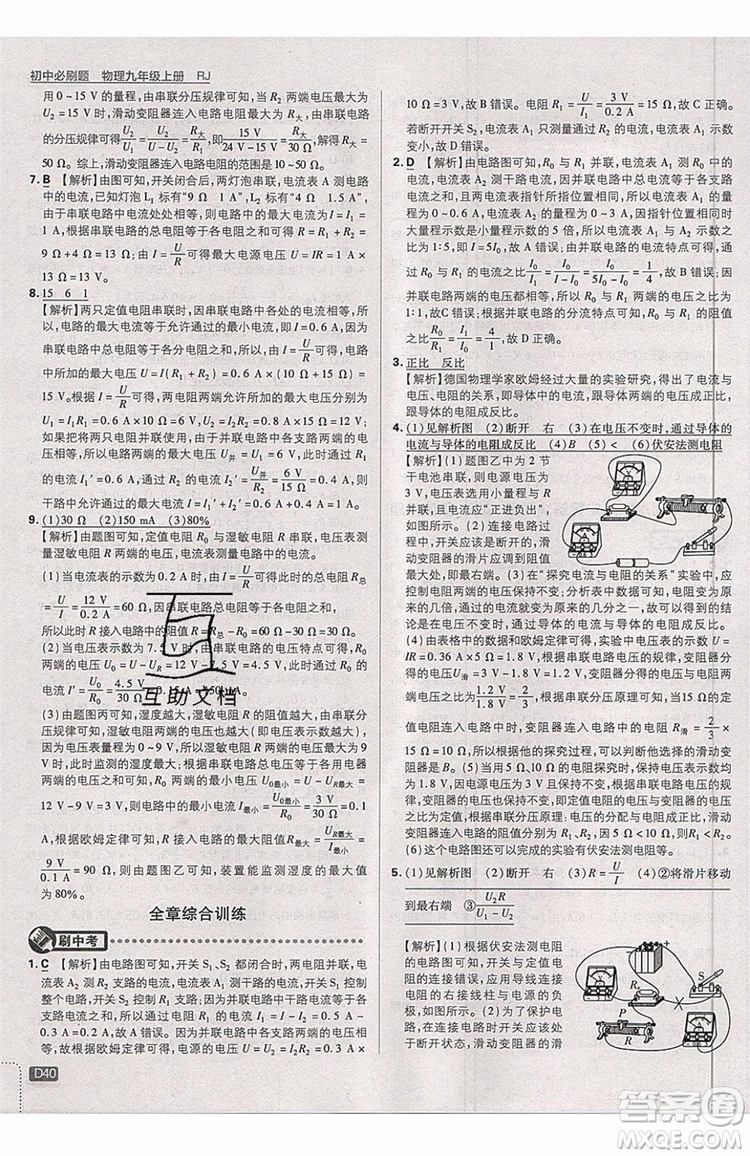 初中必刷题 物理九年级上册 RJ
用 0～15 V 的量程，由串联分压规律可知，当 R₂ 两端电压为
U₂＝15 V 时，滑动变阻器连入电路电阻最大为 R大，由串联电路
的分压规律可得 U₂/(U－U₂)＝R大/R₁，即 15 V/(24 V－15 V)＝R大/30 Ω，解得 R大＝
50 Ω。综上，滑动变阻器连入电路电阻的范围是 10～50 Ω。
7. B 【解析】由图可知，开关闭合后，两灯泡串联，电流表 A 测电路中
的电流，已知灯泡 L₁ 标有“9 Ω 1 A”，L₂ 标有“4 Ω 1.5 A”。
由于串联电路中电流处处相等，则电路中的最大电流为 I＝I₁＝
1 A，因串联电路的总电阻等于各分电阻之和，则 R＝R₁＋R₂＝
9 Ω＋4 Ω＝13 Ω，由 I＝U/R 可得最大电源电压 U＝IR＝1 A×
13 Ω＝13 V。
8. 15 6 1
【解析】两只定值电阻串联时，因串联电路中各处的电流相等，则
电路的最大电流等于允许通过的最小电流 I＝I₁＝0.6 A，根据
串联电路中总电阻等于各分电阻之和以及 I＝U/R 可知，两电阻
串联时的最大电压 U＝I(R₁＋R₂)＝0.6 A×(10 Ω＋15 Ω)＝
15 V。根据 I＝U/R 可得，两电阻两端允许所加的最大电压 U₁＝
I₁R₁＝0.6 A×10 Ω＝6 V，U₂＝I₂R₂＝1 A×15 Ω＝15 V，
如果把两只电阻并联，因并联电路中各支路两端的电压相等，
则并联电路两端允许所加的最大电压 U并＝U₁＝6 V，通过两电
阻的电流 I₁′＝I₁＝0.6 A，I₂′＝U并/R₂＝6 V/15 Ω＝0.4 A，则
干路中允许通过的最大电流 I＝I₁′＋I₂′＝0.6 A＋0.4 A＝1 A。
9. (1)30 Ω (2)150 mA (3)80%
【解析】由图可知，定值电阻 R₀ 与湿敏电阻 R 串联，电压表测
量湿敏电阻 R 两端的电压，电流表测量电路中的电流。
(1)当电流表的示数为 0.2 A 时，由 I＝U/R 可知，总电阻 R总
＝U/I＝12 V/0.2 A＝60 Ω，因串联电路总电阻等于各分电阻之和，
所以此时 R 接入电路中的阻值 R＝R总－R₀＝60 Ω－30 Ω＝30 Ω。
(2)当电压表的示数为 7.5 V 时，根据串联电路电压规律可知，
R₀ 两端的电压 U₀＝U－U湿＝12 V－7.5 V＝4.5 V，电路中的电
流 I′＝U₀/R₀＝4.5 V/30 Ω＝0.15 A＝150 mA。
(3)由题图丙可知，湿度越大，湿敏电阻的阻值越大，由串联分压
可知，湿敏电阻两端的电压越大(即电压表示数越大)，由于电压
表量程为 0～9 V，则湿敏电阻两端的电压最大为 9 V，根据串联
电路的电压特点可知，R₀ 两端的最小电压 U₀最小＝U－U最大＝
12 V－9 V＝3 V，所以，电路中的最小电流 I最小＝U₀最小/R₀＝3 V/30 Ω＝0.1
A，根据欧姆定律可知，R 接入电路中的最大阻值 R最大＝U最大/I最小＝
9 V/0.1 A＝90 Ω，由题图乙可知，装置能监测湿度的最大值
为 80%。
全章综合训练
刷中考
1. C 【解析】由电路图可知，开关 S₁、S₂ 都闭合时，两电阻并联，电
流表 A₁ 测 R₂ 支路的电流，电流表 A₂ 测干路的电流，开关 S₁ 控制
整个电路，开关 S₂ 控制 R₁ 支路。因并联电路中干路电流等于各
支路电流之和，所以通过 R₁ 的电流 I₁＝I－I₂＝0.9 A－
0.3 A＝0.6 A，故 D 错误。因为并联电路中各支路两端的电压相
等，所以由 I＝U/R 可得，电源电压 U＝U₁＝I₁R₁＝0.6 A×
10 Ω＝6 V，故 B 错误。电阻 R₂＝U/I₂＝6 V/0.3 A＝20 Ω，故 A 错误。
若断开开关 S₂，则只测量通过 R₂ 的电流，电流表 A₁ 的示数不
变，电流表 A₂ 的示数变小，故 C 正确。
2. D 【解析】由电路图可知，R₀ 与 R₁ 并联，电流表 A₁ 测 R₀ 支路中
的电流，电流表 A₂ 测干路电流，因并联电路中干路电流等于各支路
电流之和，且两电流表指针所指位置相同，所以，电流表 A₁ 的量
程为 0～0.6 A，电流表 A₂ 的量程为 0～3 A，因指针位置相同时
大量程示数是小量程示数的 5 倍，所以，由电流表 A₁ 的示数为
I₀ 可知，干路电流 I＝5I₀，故 A 错误；由于并联电路的电流规律可
知，通过 R₀ 与 R₁ 的电流之比 I₀/I₁＝I₀/(I－I₀)＝I₀/(5I₀－I₀)＝1/4，故 B 错误；因
并联电路两端的电压都相等，所以，R₀ 与 R₁ 两端的电压之比为
1∶1，故 C 错误；根据并联电阻的分流特点可知，R₀ 与 R₁ 的阻值
之比 R₀/R₁＝I₁/I₀＝4/1，故 D 正确。
3. 正比 反比
【解析】德国物理学家欧姆经过大量的实验研究，得出了电流与
电压、电阻的定量关系，即通过导体的电流跟导体的电压成正比，
跟导体的电阻成反比。
4. (1)见解析图 (2)断开 右 (3)在电压不变时，通过导体的
电流与导体的电阻成反比 (4)B (5)＜ (6)伏安法测电阻
【解析】(1)题图乙中为 2 节
干电池串联，电源的电压为
3 V，电压表选用小量程与 R
并联，滑动变阻器右下接，
如图所示。(2)连接电路过程
中，开关应断开；闭合开关前，
滑动变阻器的滑片应调到阻值
最大处，即右端。(3)在“探究电流与电阻的关系”实验中，应
控制电阻的电压不变，由表中数据可知，电阻增大为原来的几倍，
通过的电流减小为原来的几分之一，即电流和电阻成反比，故
结论是在电压不变时，通过导体的电流与导体的电阻成反比。
(4)由表格中的数据和欧姆定律可得，定值电阻两端的电压
U＝IR＝0.36 A×5 Ω＝1.8 V，滑动变阻器两端的电压为
3 V－1.8 V＝1.2 V，根据串联分压原理可知，变阻器分得的
电压 U滑＝1.2 V/1.8 V＝2/3，根据串联分压原理可知，R滑＝2/3×定
值电阻连入电路中时，变阻器连入电路中的电阻 R滑＝2/3×
30 Ω＝20 Ω，故为了完成整个实验，应该选择的滑动变阻器
是 B。(5)实验小组用他的探究过程，可以完成实验，实验过
程中，因电源电压、定值电阻两端的电压不变，根据串联电路电压的
规律，变阻器的电压也不变，定值电阻的电压与变阻器的电压之
比为定值，根据串联分压原理：定值电阻的电压小于滑动变阻器的电压，
变阻器连入电路中的阻值分别为 R₁、R₂，则 R₁＜R₂。
(6)这个电路图可以完成的实验有伏安法测电阻等。
5. (1)见解析图 (2)断开 右 (3)R＝U/I (4)②将滑片移动
到最右端 ③U₂R/(U₁－U₂)
【解析】(1)根据伏安法测电阻
的电路图连接实物，将图中
的连接错误，应用导线连接
电阻右接线柱与电源的负
极，如图所示。(2)为了保护电
路，在连接电路时，开关应处
于断开状态；闭合开关前，滑
D40
互助文档
答案圈
MXQE.COM